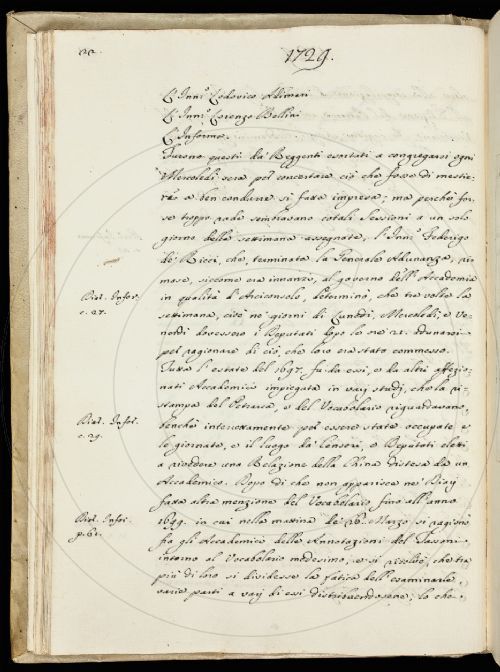 22.
1729.
L'Inn.º Lodovico Adimari
L'Inn.º Lorenzo Bellini
L'Informe.
Furono questi da' Reggenti esortati a congregarsi ogni
Mercoledì sera per concertare ciò che fosse di mestie-
a ben condurre sì fatta impresa; ma perchè for-
se troppo rade sembravano cotali Sessioni a un solo
giorno della settimana assegnate, l'Inn.º Federigo
de' Ricci, che, terminata la Generale Adunanza, ri-
mase, siccome era innanzi, al governo dell'Accademia
in qualità d'Arciconsolo, determinò, che tre volte la
settimana, cioè ne' giorni di Lunedì, Mercoledì, e Ve-
nerdì dovessero i Deputati dopo le ore 21. adunarsi
pel ragionare di ciò, che loro era stato commesso.
Tutta l'estate del 1697. fu da essi, e da altri affezio-
nati Accademici impiegata in varj studj, che la ri-
stampa del Petrarca, e del Vocabolario riguardavano,
benchè interrottamente per essere state occupate
le giornate, e il luogo da' Censori, e Deputati eletti
a rivedere una Relazione della China distesa da un
Accademico. Dopo di che non apparisce ne' Diarj
fatta altra menzione del Vocabolario fino all'anno
1699. in cui nella mattina de' 26. Marzo si ragionò
fra gli Accademici delle Annotazioni del Tassoni
intorno al Vocabolario medesimo, e si risolvè, che tra
più di loro si dividesse la fatica dell'esaminarle,
varie parti a varj di essi distribuendosene; lo che
Diar. Infor.
c. 27.
Diar. Infor.
c. 29.
Diar. Infor.
p. 61.